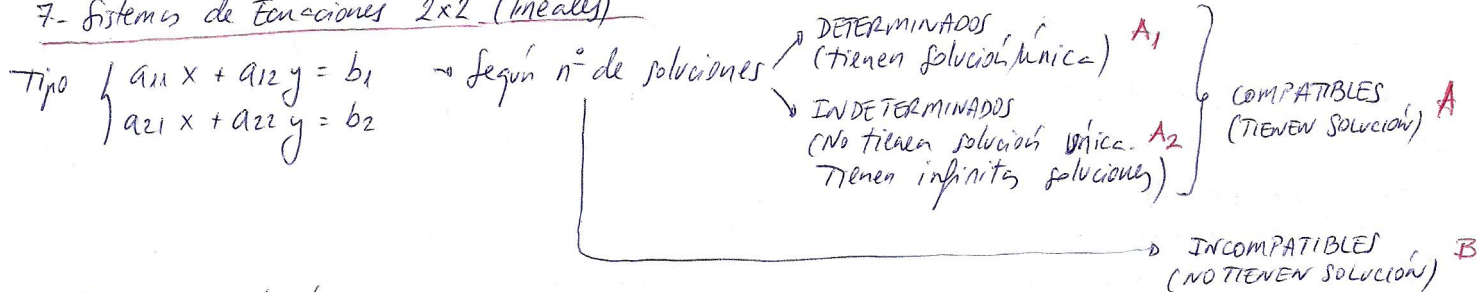 7- Sistemas de Ecuaciones 2x2 (lineales)
Tipo { a11 x + a12 y = b1
a21 x + a22 y = b2
→ Según nº de soluciones
DETERMINADOS A1
(tienen solución única)
INDETERMINADOS
(No tienen solución única. A2
Tienen infinitas soluciones)
COMPATIBLES A
(TIENEN SOLUCIÓN)
INCOMPATIBLES B
(NO TIENEN SOLUCIÓN)